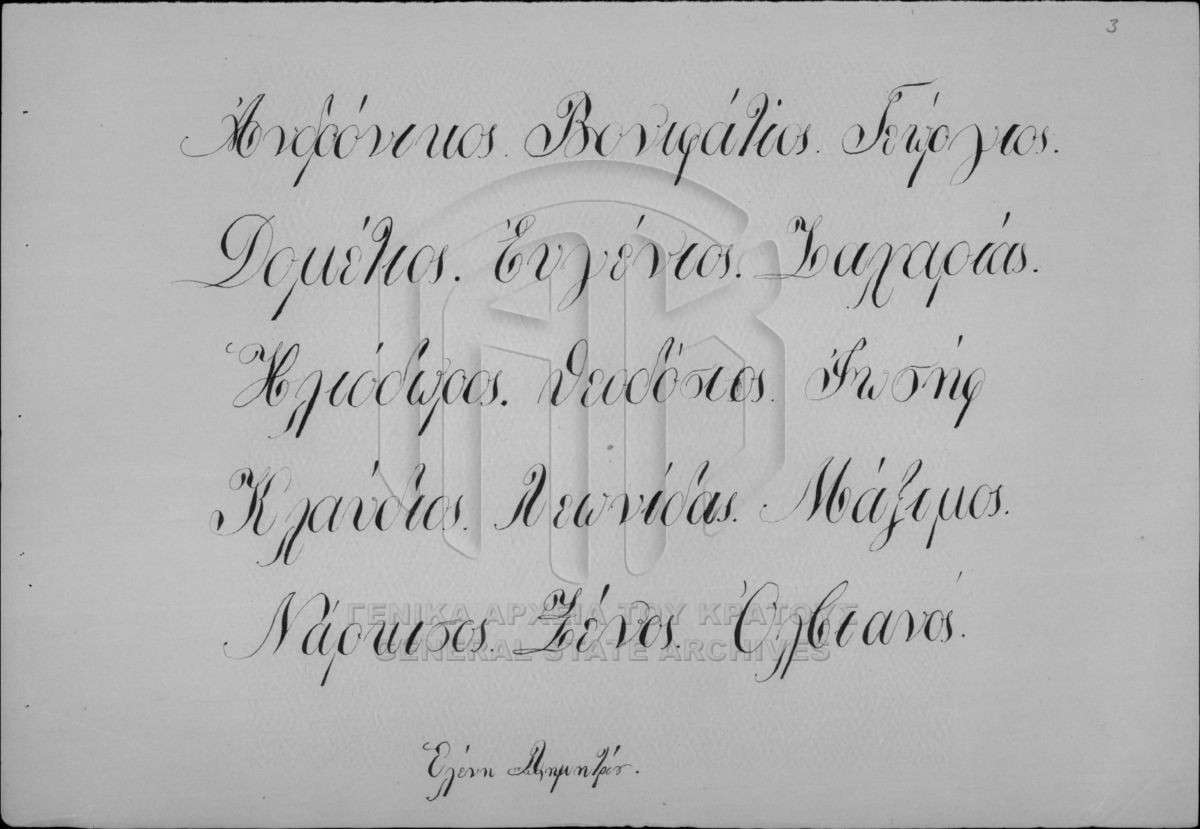 3
Ἀνδρόνικος. Βονιφάτιος. Γεώργιος.
Δομέτιος. Εὐγένιος. Ζαχαρίας.
Ἡλιόδωρος. Θεοδόσιος. Ἰωσήφ
Κλαύδιος. Λεωνίδας. Μάξιμος.
Νάρκισος. Ξένος. Ὀλβιανός.
ΓΕΝΙΚΑ ΑΡΧΕΙΑ ΤΟΥ ΚΡΑΤΟΥΣ
GENERAL STATE ARCHIVES
Ἑλένη